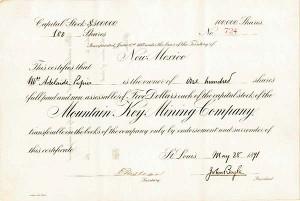 Capital Stock $500000
100000 Shares
100 Shares
No 724
Incorporated under the laws of the Territory of
New Mexico
This certifies that
Mrs Adelaide is the owner of One hundred shares
full paid and non assessable of Five Dollars each of the capital stock of the
Mountain Key Mining Company,
transferable on the books of the company only by endorsement and surrender of
this certificate.
St Louis May 28 1891
Secretary
John Boyle
President